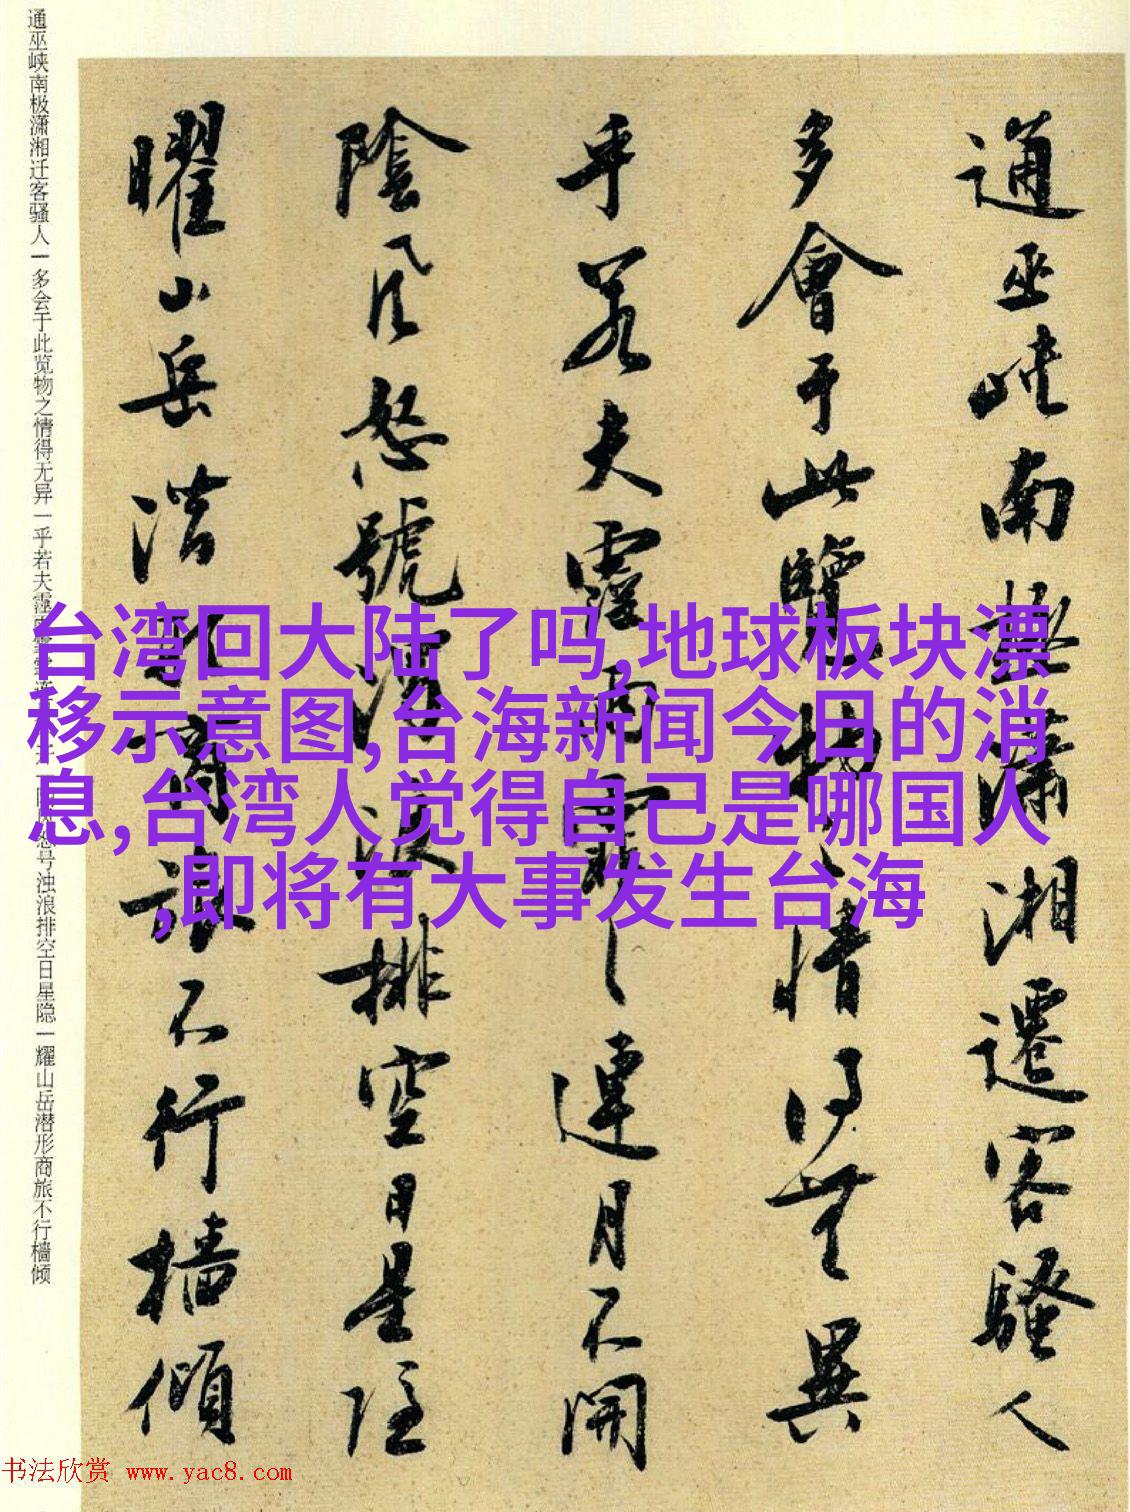 通巫峽南極瀟湘遷客騷人
多會于此覽物之情得無異
乎若夫霪雨霏〻連月不開
陰風怒號濁浪排空日星隱
曜山岳潛形商旅不行檣傾
通巫峡南极潇湘迁客骚人一多会于此览物之情得无异一乎若夫霪雨霏霏连 怒号浊浪排空日星隐一耀山岳潜形商旅不行樯倾
台湾回大陆了吗,地球板块漂
移示意图,台海新闻今日的消
息,台湾人觉得自己是哪国人
,即将有大事发生台海
书法欣赏 www.yac8.com